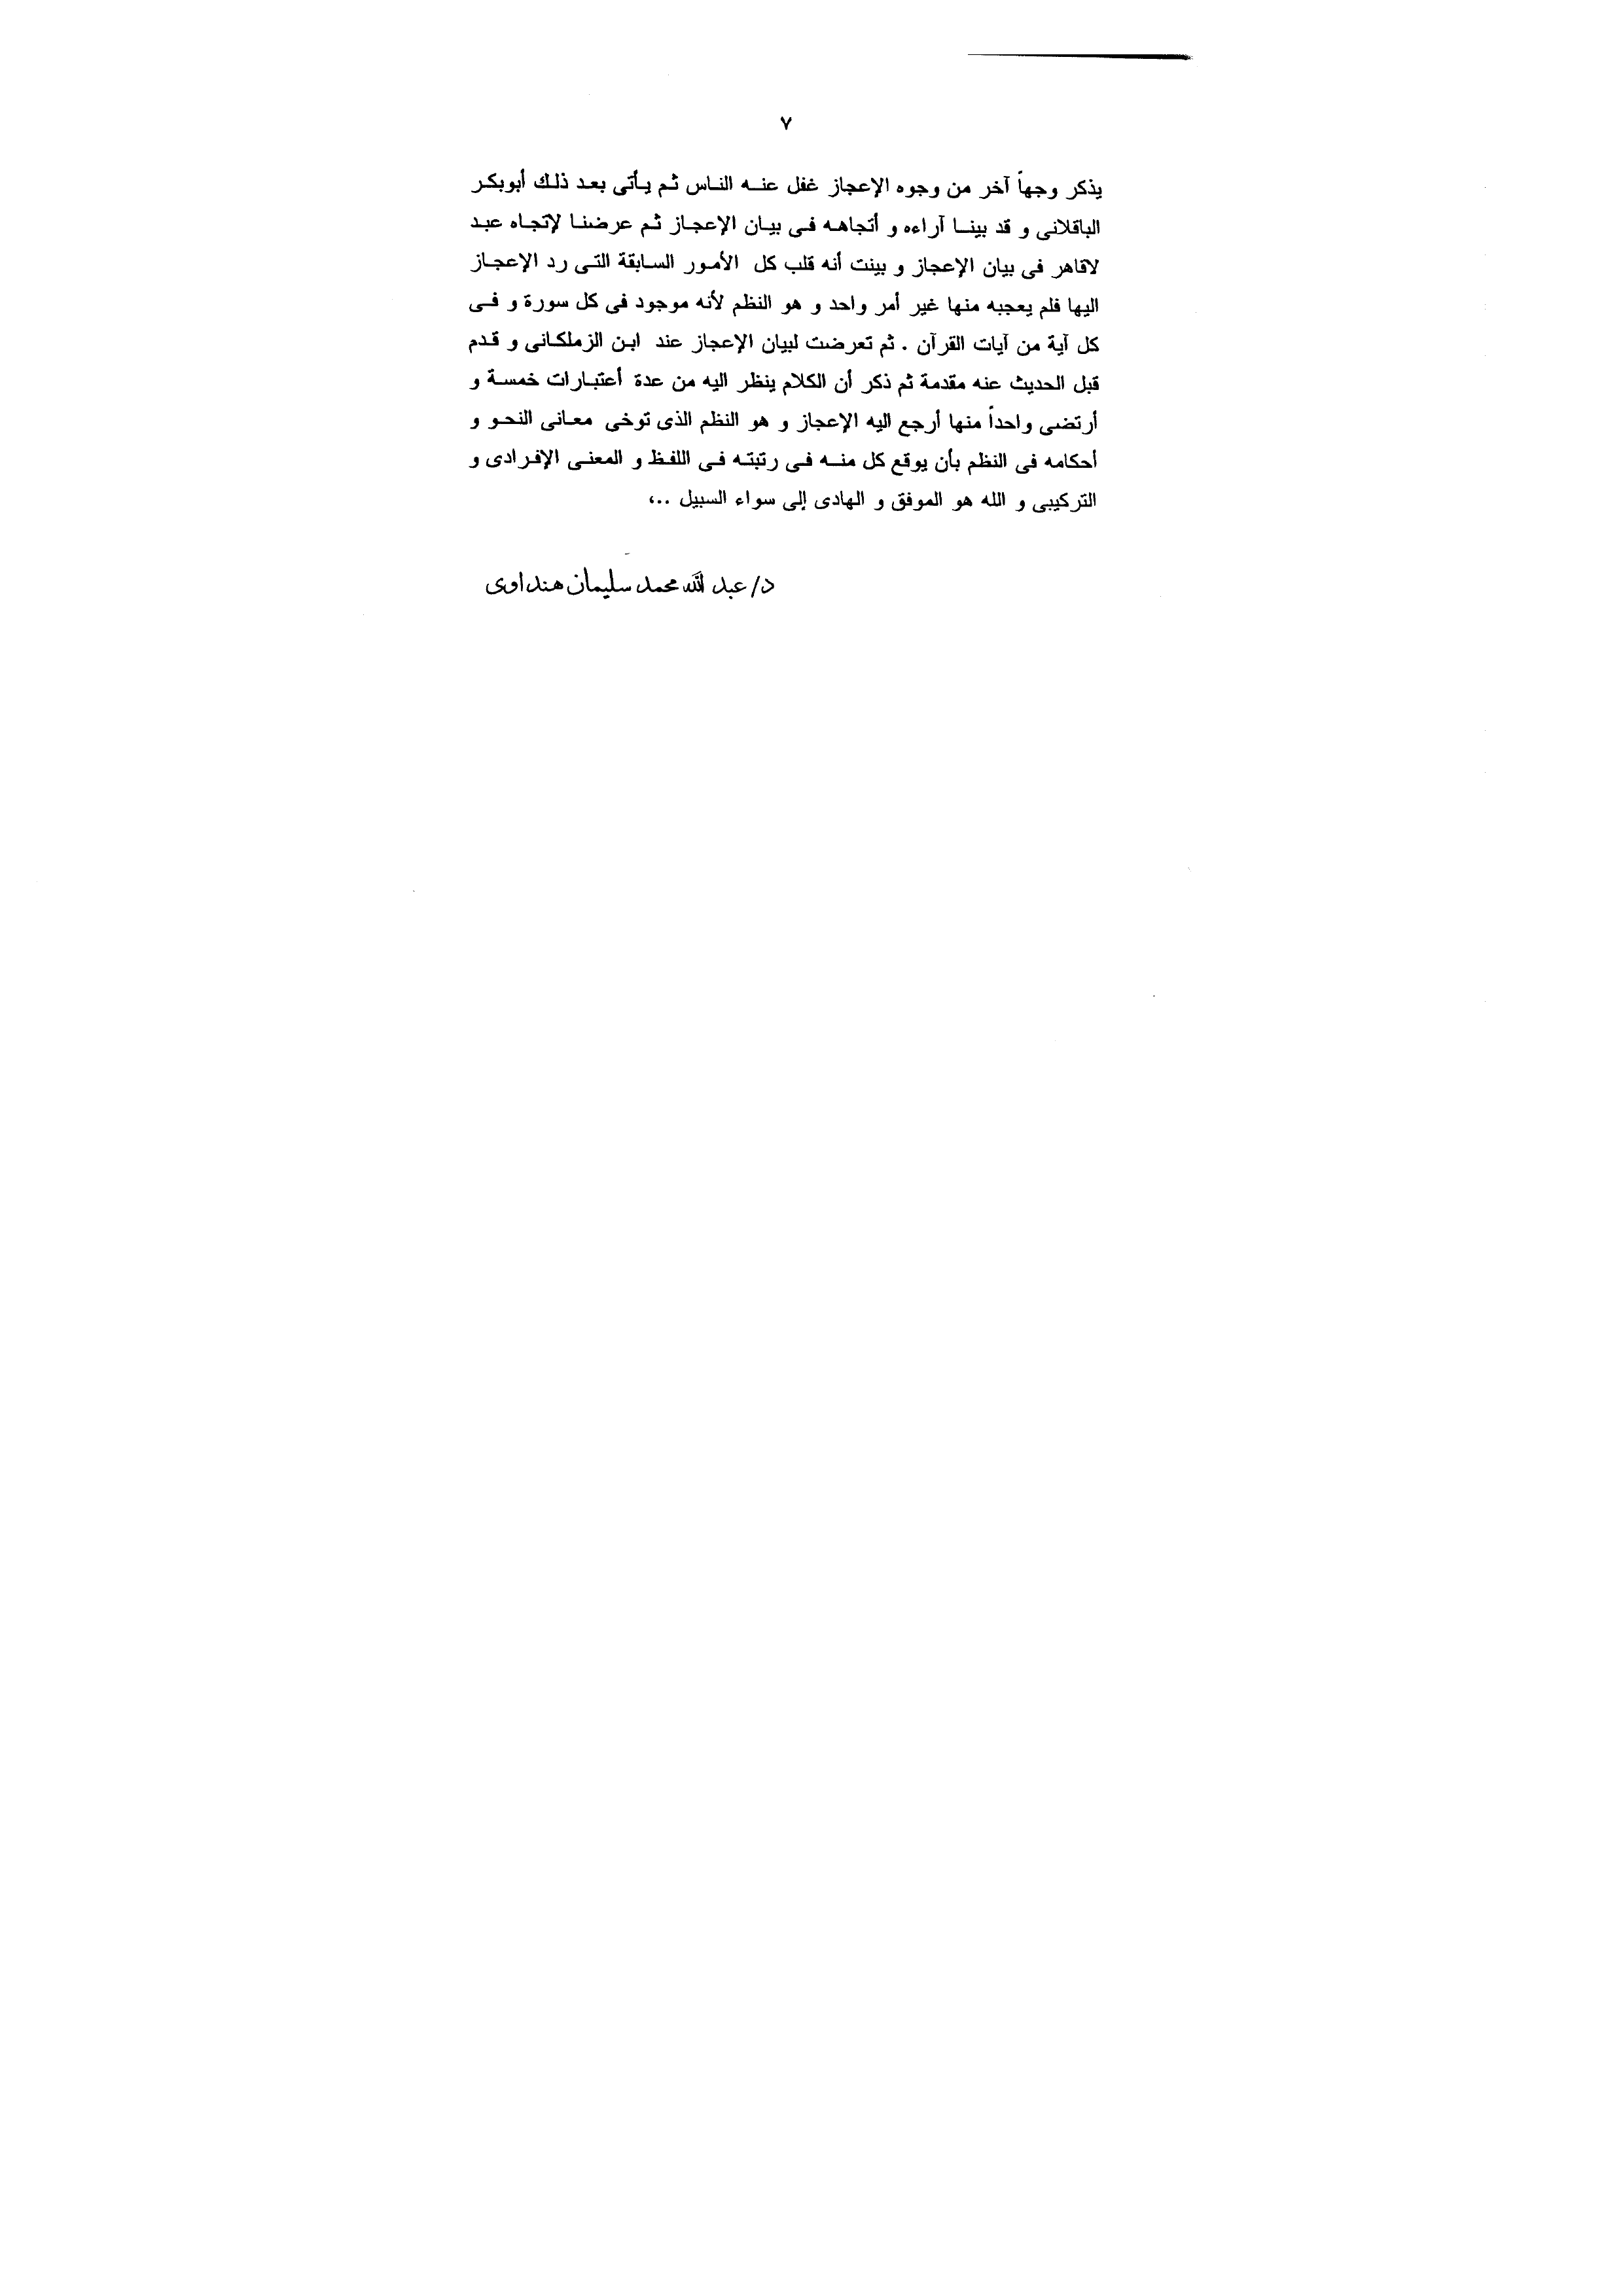 ٧
يذكر وجهاً آخر من وجوه الإعجاز غفل عنه الناس ثم يأتى بعد ذلك أبوبكر
الباقلانى و قد بينا آراءه و أتجاهه فى بيان الإعجاز ثم عرضنا لإتجاه عبد
لاقاهر فى بيان الإعجاز و بينت أنه قلب كل الأمور السابقة التى رد الإعجاز
اليها فلم يعجبه منها غير أمر واحد و هو النظم لأنه موجود فى كل سورة و فى
كل آية من آيات القرآن . ثم تعرضت لبيان الإعجاز عند ابن الزملكانى و قدم
قبل الحديث عنه مقدمة ثم ذكر أن الكلام ينظر اليه من عدة أعتبارات خمسة و
أرتضى واحداً منها أرجع اليه الإعجاز و هو النظم الذى توخى معانى النحو و
أحكامه فى النظم بأن يوقع كل منه فى رتبته فى اللفظ و المعنى الإفرادى و
التركيبى و الله هو الموفق و الهادى إلى سواء السبيل ..،
د/ عبد الله محمد سليمان هنداوى